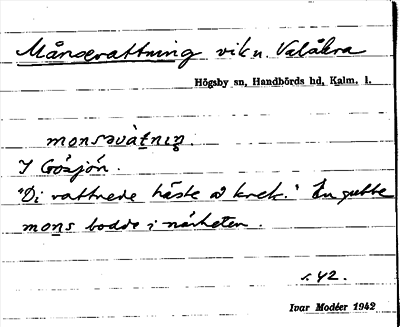 Månsevattning vik n. Valåkra
Högsby sn, Handbörds hd, Kalm. l.
monsəvàtnıŋ.
I Gösjön.
"Di vattnede häste å krek." En gubbe
mons bodde i närheten.
s. 42.
Ivar Modéer 1942